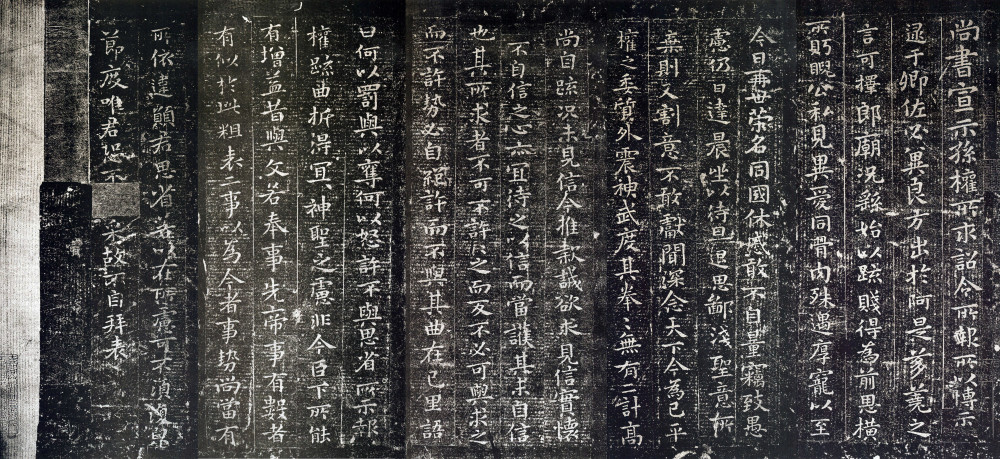 尚書宣示孫權所求詔令所報所以博示
逮于卿佐必冀良方出於阿是芻蕘之
言可擇郎廟況繇始以疏賤得為前恩橫
所眄睨公私見異愛同骨肉殊遇厚寵以至
今日再世榮名同國休慼敢不自量竊致愚
慮仍日達晨坐以待旦退思鄙淺聖意所
棄則又割意不敢獻聞深念天下今為已平
權之委質外震神武度其拳〻無有二計高
尚自疏況未見信今推款誠欲求見信實懷
不自信之心亦宜待之以信而當護其未自信
也其所求者不可不許許之而反不必可與求之
而不許勢必自絕許而不與其曲在己里語
曰何以罰與以奪何以怒許不與思省所示報
權疏曲折得宜神聖之慮非今臣下所能
有增益昔與文若奉事先帝事有數者
有似於此粗表二事以為今者事勢尚當有
所依違願君思省若以在所慮可不須復貌
節度唯君恐不 采故不自拜表